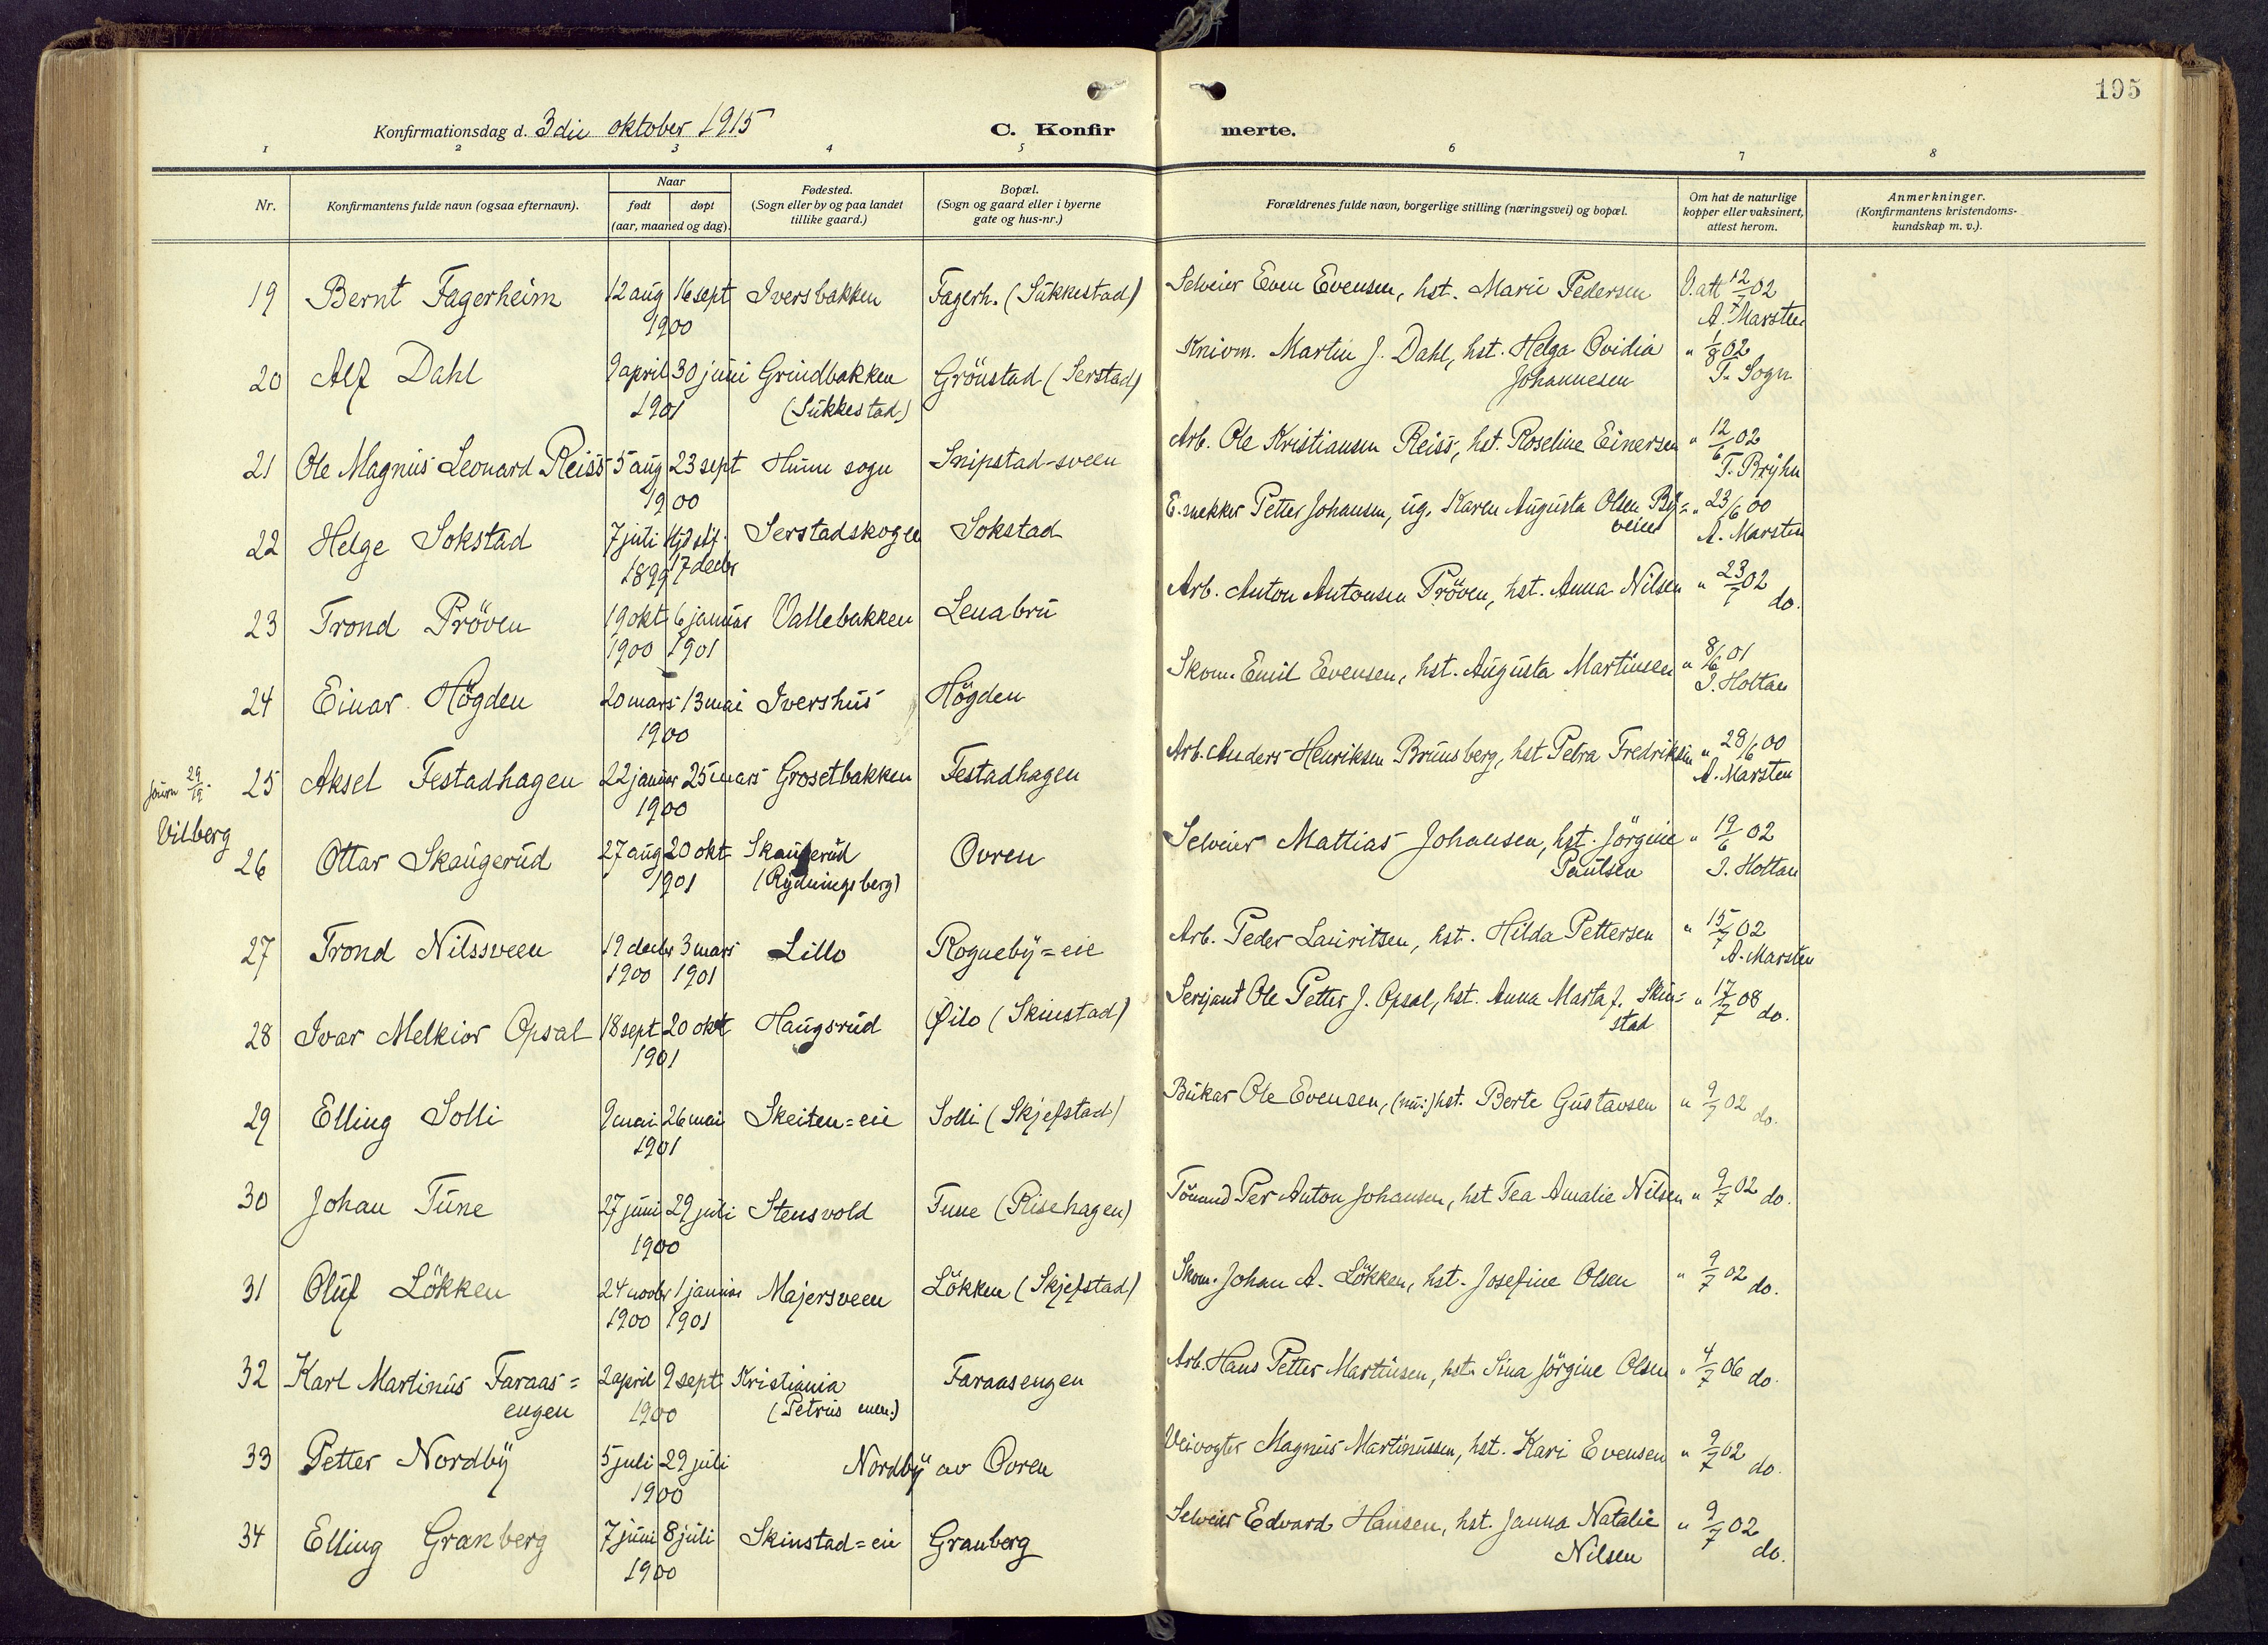 195
Konfirmationsdag d. 3die oktober 1915 C. Konfirmerte.
1 2 3 4 5 6 7 8
Nr. Konfirmantens fulde navn (ogsaa efternavn). Naar født døpt (aar, maaned og dag). Fødested. (Sogn eller by og paa landet tillike gaard.) Bopæl. (Sogn og gaard eller i byerne gate og hus-nr.) Forældrenes fulde navn, borgerlige stilling (næringsvei) og bopæl. Om hat de naturlige kopper eller vaksinert, attest herom. Anmerkninger. (Konfirmantens kristendomskundskap m. v.).
19 Bernt Fagerheim 12 aug 16 sept Iversbakken Fagerh. (Sükkestad) Selveier Even Evensen, hst. Marie Pedersen V. att 12/7 02
1900 A. Marsteen
20 Alf Dahl 9 april 30 juni Grindbakken Grönstad (Serstad) Knivm. Martin J. Dahl, hst. Helga Ovidia " 1/8 02
1901 (Sükkestad) Johannesen T. Sogn
21 Ole Magnüs Leonard Reiss 5 aug 23 sept Hunn sogn Snipstad-sveen Arb. Ole Kristiansen Reiss, hst. Roseline Einersen " 12/6 02
1900 T. Bryhn
22 Helge Sokstad 7 juli Serstadskogen Sokstad E. snekker Petter Johansen, ug. Karen Augusta Olsen " 23/6 00
1899 17 decbr A. Marsten
23 Trond Pröven 19 okt 6 januar Vallebakken Lenabru Arb. Anton Antonsen Pröven, hst. Anna Nilsen " 23/7 02 do.
1900 1901
24 Einar Högden 20 mars 13 mai Ivershus Högden Skom. Emil Evensen, hst. Augusta Martinsen " 8/6 01
1900 I. Holtan
Journ 29/19 25 Aksel Festadhagen 22 januar 25 mars Grosetbakken Festadhagen Arb. Anders Henriksen Brunsberg, hst Petra Fredriksen " 28/6 00
1900 A. Marsten
Vilberg
26 Ottar Skaugerud 27 aug 20 okt Skaugerud Ovren Selveier Mattias Johansen, hst. Jörgine " 19/6 02
1901 (Rydningsberg) Paulsen I. Holtan
27 Trond Nilssveen 19 decbr 3 mars Lillo Rogneby=eie Arb. Peder Lauritsen, hst. Hilda Pettersen " 15/7 02
1900 1901 A. Marsten
28 Ivar Melkior Opsal 18 sept 20 okt Haugsrud Øilo (Skinstad) Sersjant Ole Petter J. Opsal, hst. Anna Marta f. Skin= " 17/7 08 do.
1901 stad
29 Elling Solli 9 mai 26 mai Skeiten=eie Solli (Skjefstad) Ole Evensen, hst. Berte Gustavsen " 9/7 02 do.
1901
30 Johan Tune 27 juni 29 juli Stensvold Tune (Risehagen) Tömmd Per Anton Johansen, hst Tea Amalie Nilsen " 9/7 02 do.
1900
31 Oluf Lökken 24 novbr 1 januar Majersveen Lökken (Skjefstad) Skom. Johan A. Lökken, hst. Josefine Olsen " 9/7 02 do.
1900 1901
32 Karl Martinus Faraas= 2 april 9 sept Kristiania Faraasengen Arb. Hans Petter Martinsen, hst. Sina Jörgine Olsen " 4/7 06 do.
engen 1900 (Petrus)
33 Petter Nordby 5 juli 29 juli Nordby av Ovren Veivogter Magnus Martinussen, hst. Kari Evensen " 9/7 02 do.
1900
34 Elling Granberg 7 juni 8 juli Skinstad=eie Granberg Selveier Edvard Hansen, hst. Janna Natalie " 9/7 02 do.
1900 Nilsen